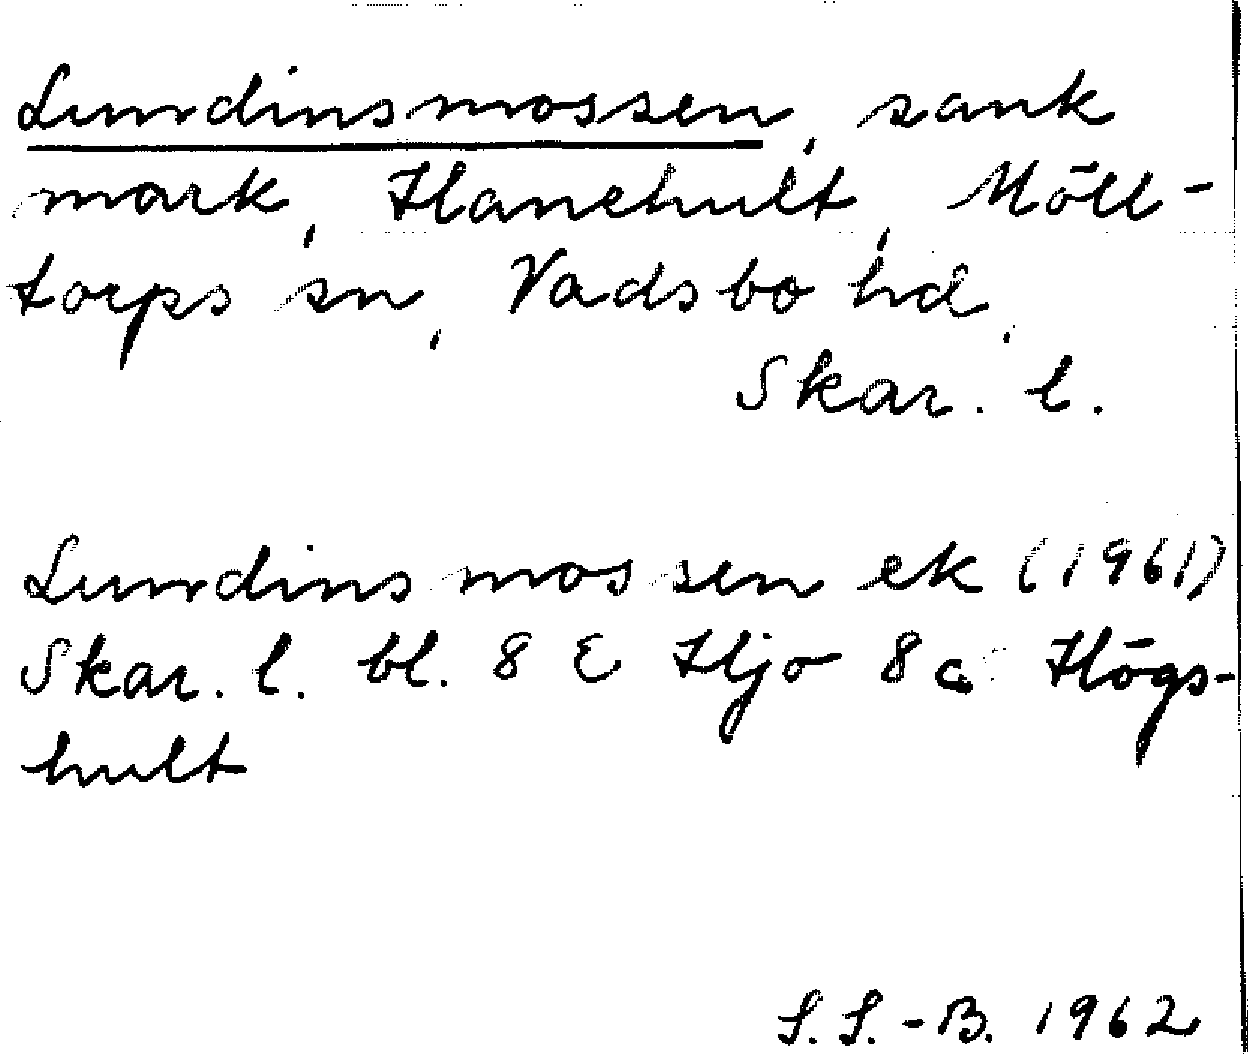 Lundinsmossen, sank
mark, Hanehult, Möll-
torps sn, Vadsbo hd,
Skar. l.
Lundinsmossen ek (1961)
Skar. l. bl. 8 E Hjo 8c Högs-
hult
S.S.-B. 1962